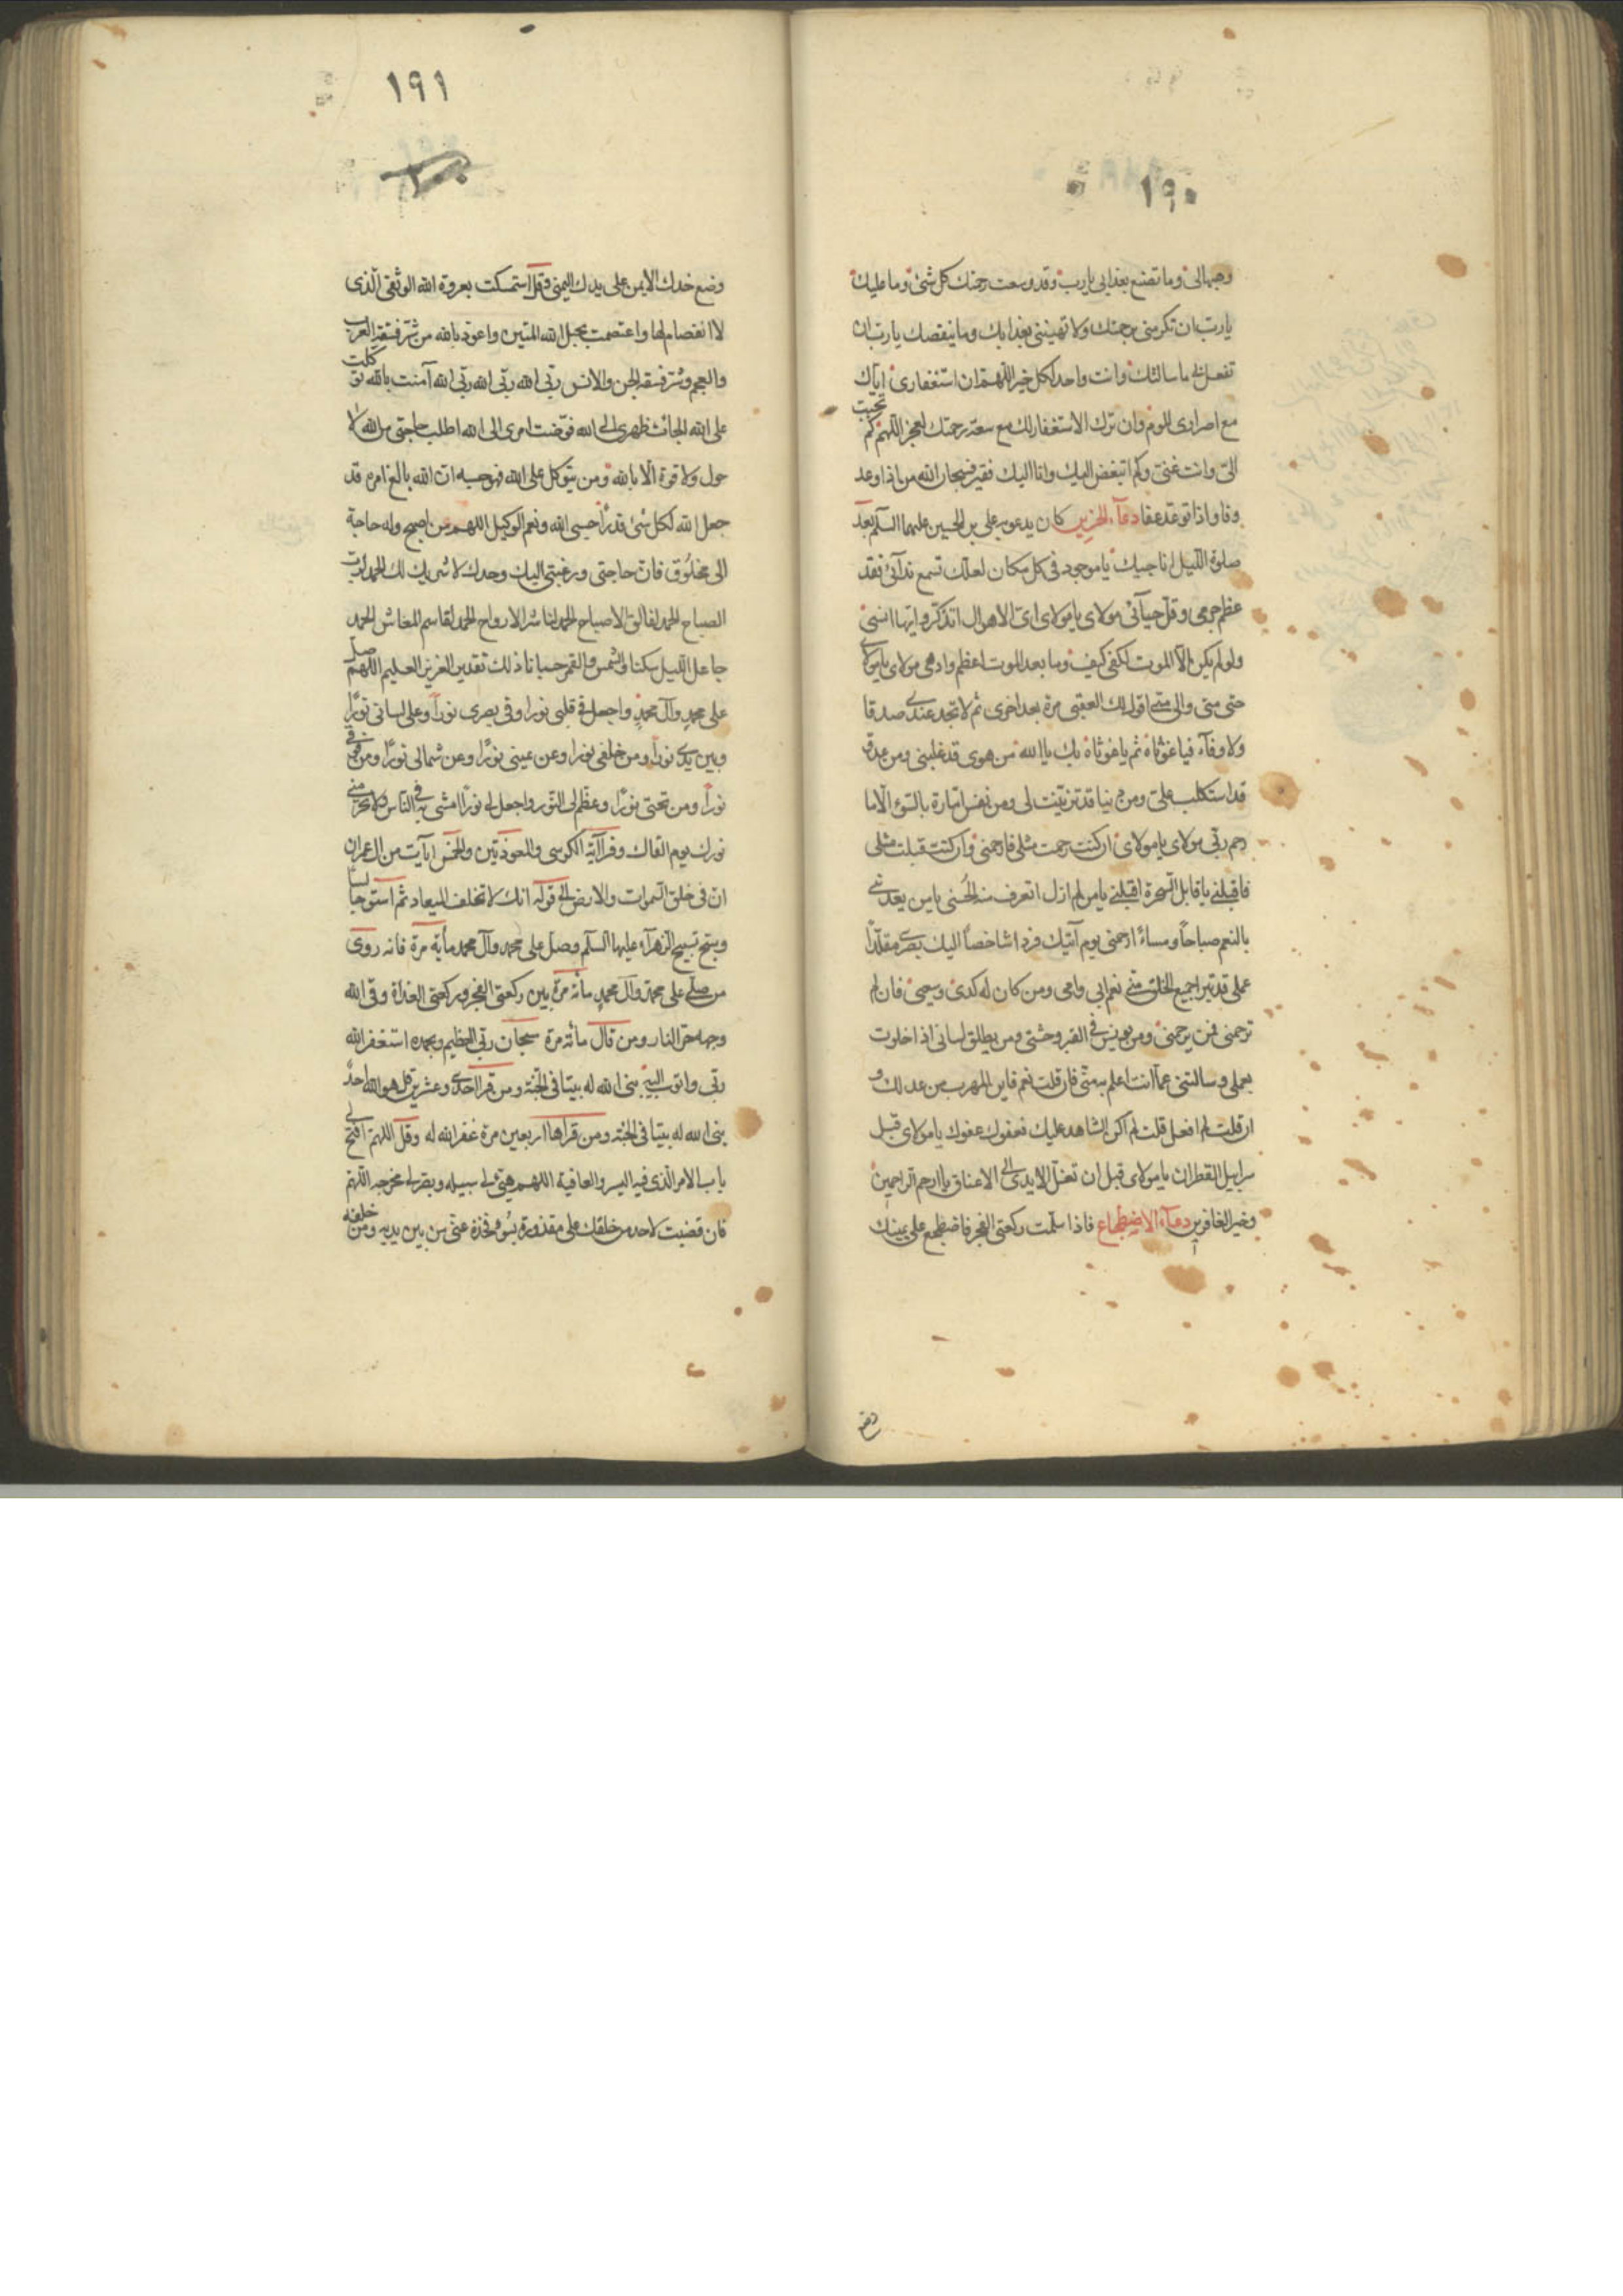 ١٩٠
وجهالى وما تصنع بعذابى يا رب وقد وسعت رحمتك كل شئ وما عليك
يا رب ان تكرمنى برحمتك ولا تهيننى بعذابك وما ينقصك يا رب ان
تفعل لى ما سالتك وانت واجد لكل خير اللهم ان استغفارى اياك
مع اصرارى للوم وان ترك الاستغفار لك مع سعة رحمتك لعجز اللهم كم تحببت
الىّ وانت غنى وكم اتبغض اليك وانا اليك فقير فسبحان الله من اذا وعد
وفا واذا توعد عفا دعآء الحزين كان يدعو به على بن الحسين عليهما السلم بعد
صلوة الليل اناجيك يا موجود فى كل مكان لعلك تسمع ندآئى فقد
عظم جرمى وقل حيآئى مولاى يا مولاى اى الاهوال اتذكر وايها انسى
ولو لم يكن الا الموت لكفى كيف وما بعد الموت اعظم وادهى مولاى يا مولاى
حتى متى والى متى اقول لك العتبى مرة بعد اخرى ثم لا تجد عندى صدقا
ولا وفآء فيا غوثاه ثم يا غوثاه بك يا الله من هوى قد غلبنى ومن عدو
قد استكلب علىّ ومن دنيا قد تزينت لى ومن نفس امارة بالسوء الا ما
رحم ربى مولاى يا مولاى ان كنت رحمت مثلى فارحمنى وان كنت قبلت مثلى
فاقبلنى يا قابل السحرة اقبلنى يا من لم ازل اتعرف منه الحسنى يا من يغذينى
بالنعم صباحاً ومساءً ارحمنى يوم آتيك فردا شاخصاً اليك بصرى مقلداً
عملى قد تبرا جميع الخلق منى نعم ابى وامى ومن كان له كدى وسعيى فان لم
ترحمنى فمن يرحمنى ومن يونس فى القبر وحشتى ومن يطلق لسانى اذا خلوت
بعملى وسالتنى عما انت اعلم به منى فان قلت نعم فاين المهرب من عدلك و
ان قلت لم افعل قلت الم اكن الشاهد عليك فعفوك عفوك يا مولاى قبل
سرابيل القطران يا مولاى قبل ان تغل الايدى الى الاعناق يا ارحم الراحمين
وخير الغافرين دعآء الاضطجاع فاذا سلمت ركعتى الفجر فاضطجع على يمينك
وضع
١٩١
وضع خدك الايمن على يدك اليمنى وقل استمسكت بعروة الله الوثقى الذى
لا انفصام لها واعتصمت بحبل الله المتين واعوذ بالله من شر فسقة العرب
والعجم وشر فسقة الجن والانس ربى الله ربى الله ربى الله آمنت بالله توكلت
على الله الجات ظهرى الى الله فوضت امرى الى الله اطلب حاجتى من الله لا
حول ولا قوة الا بالله ومن يتوكل على الله فهو حسبه ان الله بالغ امره قد
جعل الله لكل شئ قدراً حسبى الله ونعم الوكيل اللهم من اصبح وله حاجة
الى مخلوق فان حاجتى ورغبتى اليك وحدك لا شريك لك الحمد لرب
الصباح الحمد لفالق الاصباح الحمد لناشر الارواح الحمد لقاسم المعاش الحمد
جاعل الليل سكنا والشمس والقمر حسبانا ذلك تقدير العزيز العليم اللهم صل
على محمد وآل محمد واجعل فى قلبى نورا وفى بصرى نوراً وعلى لسانى نوراً
وبين يدى نوراً ومن خلفى نورا وعن يمينى نوراً وعن شمالى نوراً ومن فوقى
نوراً ومن تحتى نوراً وعظم لى النور واجعل لى نوراً امشى به فى الناس ولا تحرمنى
نورك يوم القاك وقرا آية الكرسى والمعوذتين والخمس آيات من ال عمران
ان فى خلق السموات والارض الى قوله انك لا تخلف الميعاد ثم استو جالسا
وسبح تسبيح الزهرآء عليها السلم وصل على محمد وآل محمد مأية مرة فانه روى
من صلى على محمد وآل محمد مأئة مرة بين ركعتى الفجر وركعتى الغداة وقى الله
وجهه حر النار ومن قال مأئة مرة سبحان ربى العظيم وبحمده استغفر الله
ربى واتوب اليه بنى الله له بيتا فى الجنة ومن قرا احدى وعشرين قل هو الله احد
بنى الله له بيتا فى الجنة ومن قراها اربعين مرة غفر الله له وقل اللهم افتح لى
باب الامر الذى فيه اليسر والعافية اللهم هيئ لى سبيله وبصرنى مخرجه اللهم
فان قضيت لاحد من خلقك على مقدرة بسوء فخذه عنى من بين يديه ومن خلفه